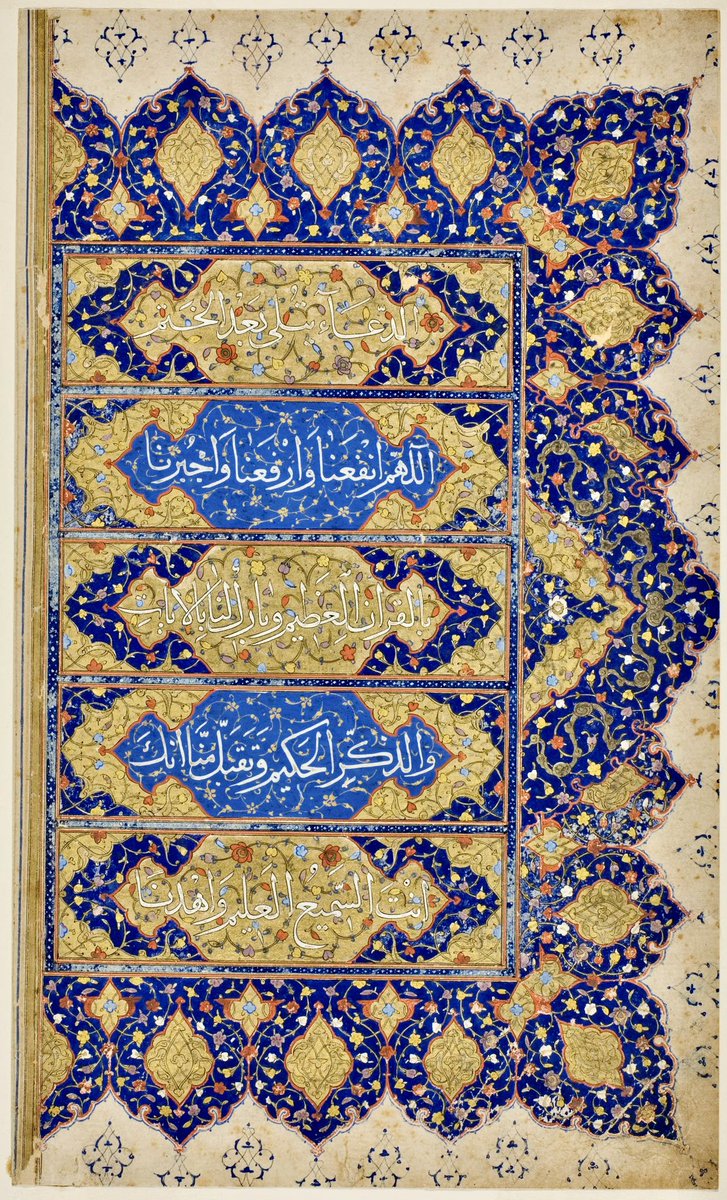 الدعاء يتلى بعد الختم
اَللّهم انْفَعَنَا وَارْفَعنَا وَاجبُرنا
بالقران العَظيم وبارك لنا بالايات
وَالذكر الحَكيم وَتقَبَّل مِنّا انكَ
انتَ السَّميعُ العَليم وَاهدنَا